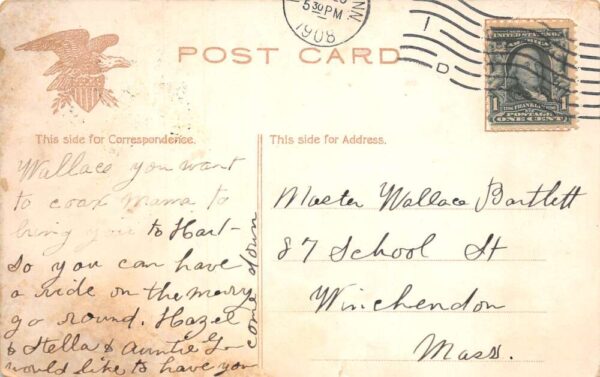 NN
5 30 PM
1908
1
D
POST CARD
UNITED STATES
OF AMERICA
1 FRANKLIN 1
POSTAGE
ONE CENT
This side for Correspondence.
Wallace you want
to coax mama to
bring you to Hart-
so you can have
a ride on the mery
go round. Hazel
& Stella & Auntie G
would like to have you
come down
This side for Address.
Master Wallace Bartlett
87 School St
Winchendon
Mass.